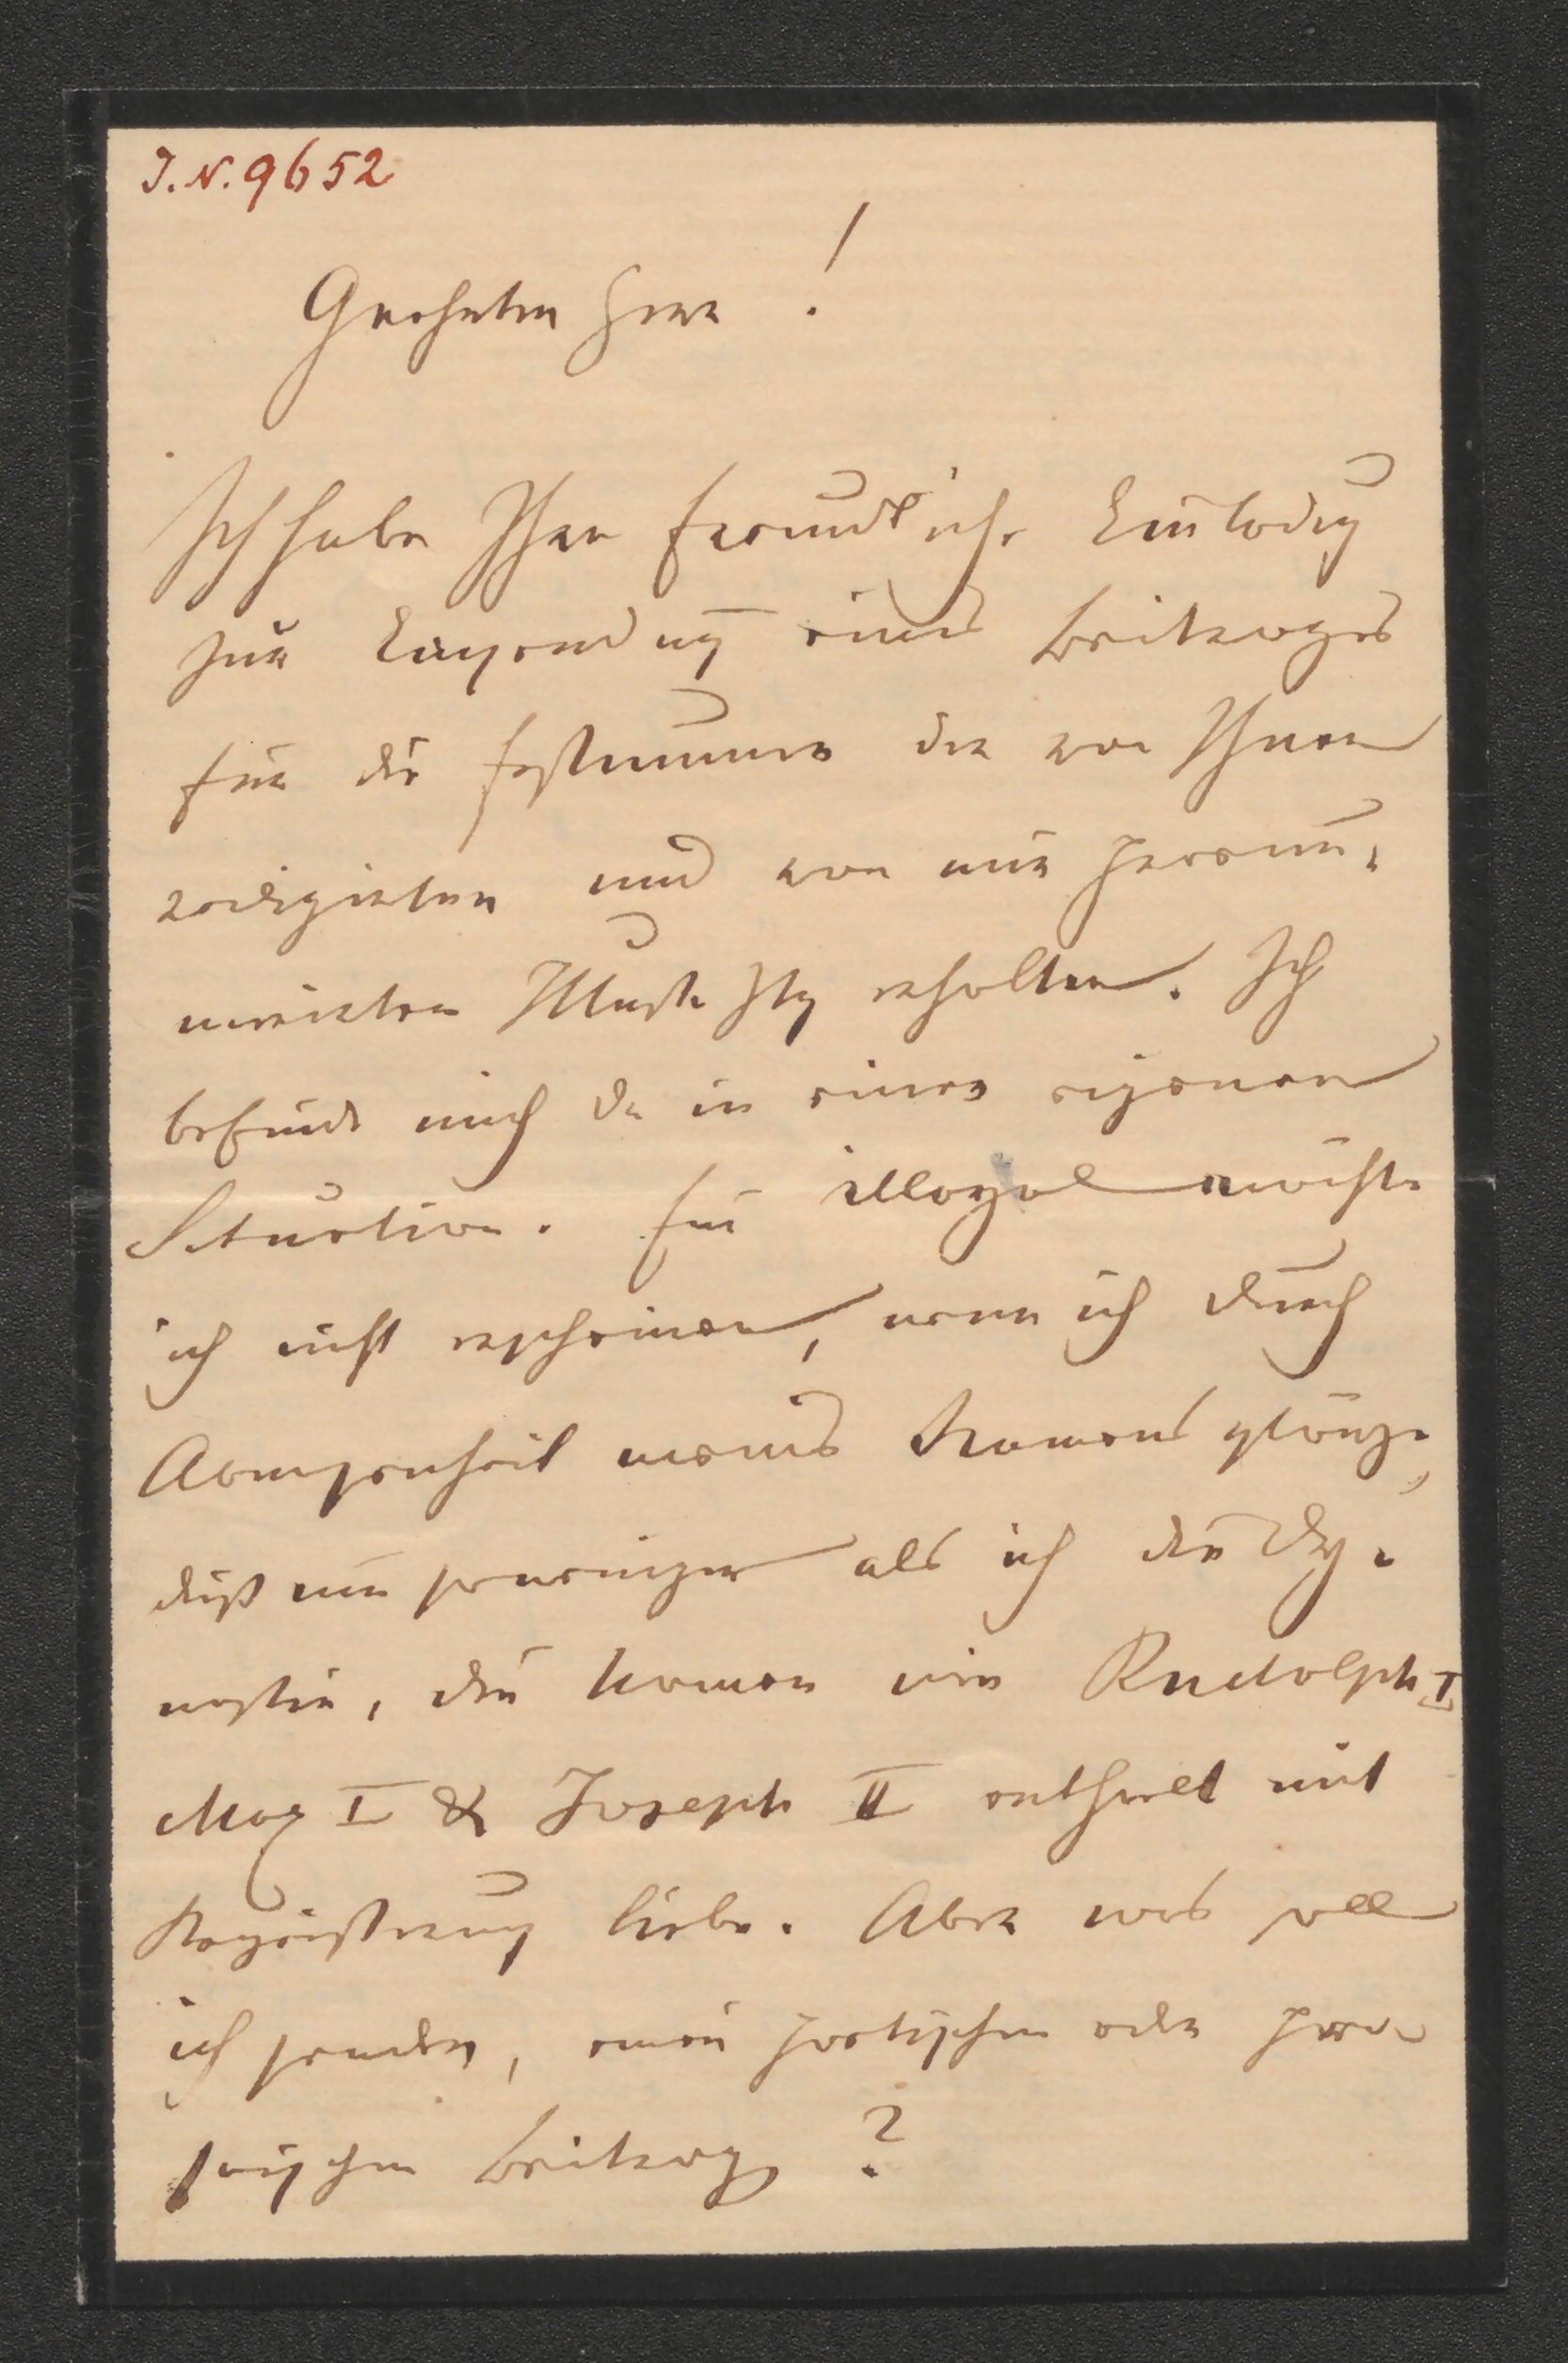 J. N. 9652
Geehrter Herr!
Ich habe Ihre freundliche Einladung
zur Einsendung eines Beitrages
für die Festnummer der von Ihnen
redigirten und von mir pränu-
merirten Illustr Ztg erhalten. Ich
befinde mich da in einer eigenen
Situation. Für illoyal möchte
ich nicht erscheinen, wenn ich durch
Abwesenheit meines Namens glänze,
dieß um so weniger als ich die Dy-
nastie, die Namen wie Rudolph I
Max I & Joseph II enthielt mit
Begeisterung liebe. Aber was soll
ich senden, einen poetischen oder pro-
saischen Beitrag?